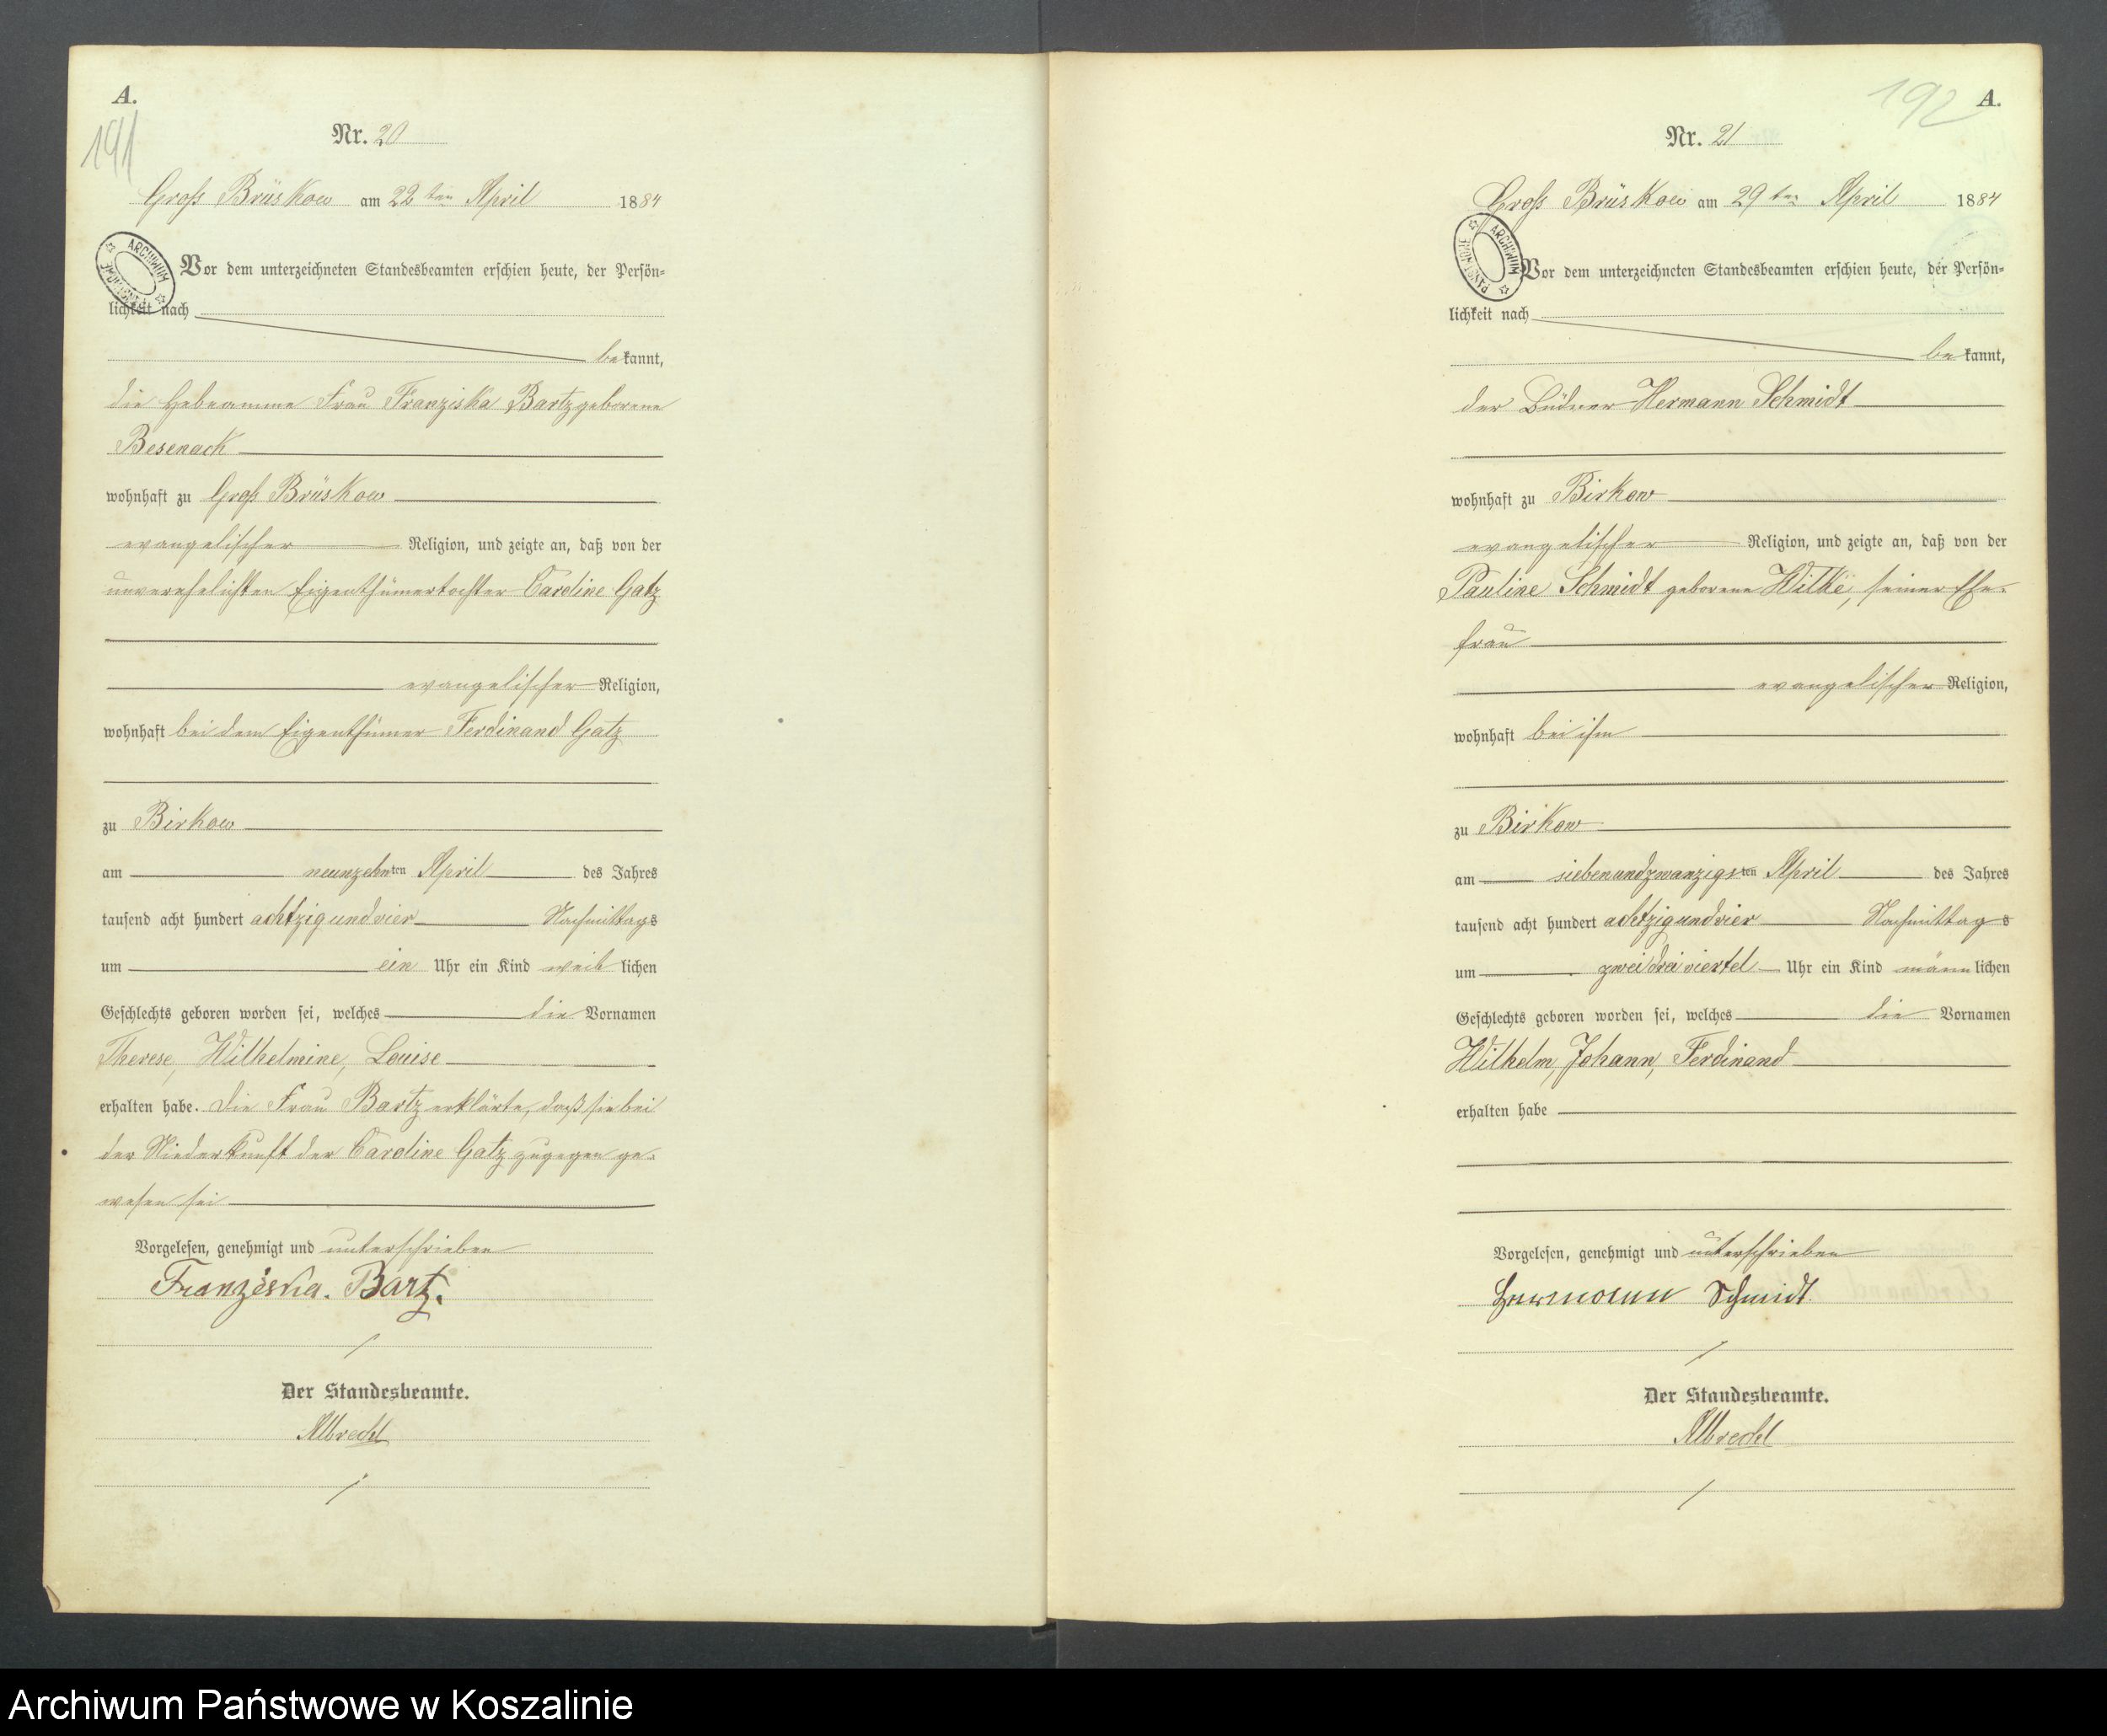 A.
191
Nr. 20
Groß Brüskow am 22ten April 1884
ARCHIWUM PAŃSTWOWE
Vor dem unterzeichneten Standesbeamten erschien heute, der Persön-
lichkeit nach
bekannt,
die Hebeamme Frau Franziska Bartz geborene
Besenack
wohnhaft zu Groß Brüskow
evangelischer Religion, und zeigte an, daß von der
unverehelichten Eigenthümertochter Caroline Gatz
evangelischer Religion,
wohnhaft bei dem Eigenthümer Ferdinand Gatz
zu Birkow
am neunzehnten April des Jahres
tausend acht hundert achtzig und vier Nachmittags
um ein Uhr ein Kind weiblichen
Geschlechts geboren worden sei, welches die Vornamen
Therese, Wilhelmine, Louise
erhalten habe. Die Frau Bartz erklärte, daß sie bei
der Niederkunft der Caroline Gatz zugegen ge-
wesen sei
Vorgelesen, genehmigt und unterschrieben
Franziska. Bartz.
Der Standesbeamte.
Albrecht
192
A.
Nr. 21
Groß Brüskow am 29ten April 1884
ARCHIWUM PAŃSTWOWE
Vor dem unterzeichneten Standesbeamten erschien heute, der Persön-
lichkeit nach
bekannt,
der Büdner Hermann Schmidt
wohnhaft zu Birkow
evangelischer Religion, und zeigte an, daß von der
Pauline Schmidt geborene Wilke, seiner Ehe-
frau
evangelischer Religion,
wohnhaft bei ihm
zu Birkow
am siebenundzwanzigsten April des Jahres
tausend acht hundert achtzig und vier Nachmittags
um zwei drei viertel Uhr ein Kind männlichen
Geschlechts geboren worden sei, welches die Vornamen
Wilhelm, Johann, Ferdinand
erhalten habe
Vorgelesen, genehmigt und unterschrieben
Hermann Schmidt
Der Standesbeamte.
Albrecht
Archiwum Państwowe w Koszalinie